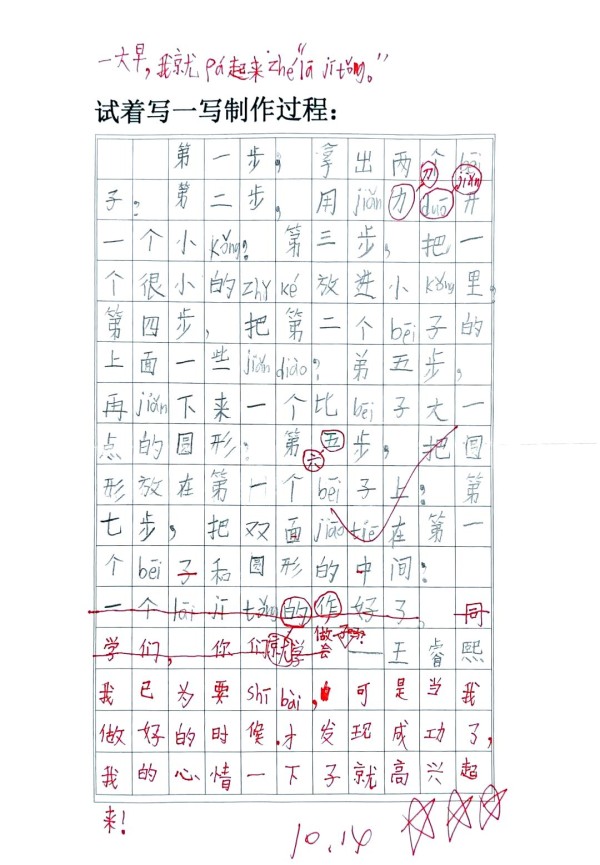 一大早，我就pá起来zhé“lā jī tǒng。”
试着写一写制作过程：
第一步，拿出两个bēi
子。第二步，用jiǎn刀duō开
刀 jiǎn
一个小kǒng。第三步，把一
个很小的zhǐ ké放进小kǒng里。
第四步，把第二个bēi子的
上面一些jiǎn diào。第五步，
再jiǎn下来一个比bēi子大一
点的圆形。第五步，把回
六
形放在第一个bēi子上。第
七步，把双面jiāo tiē在第一
个bēi子和圆形的中间。
一个lā jī tǒng的作好了，同
学们，你们就学做一下？——王睿熙
会
我已为要shī bài，可是当我
做好的时候，才发现成功了，
我的心情一下子就高兴起
来！
10.14